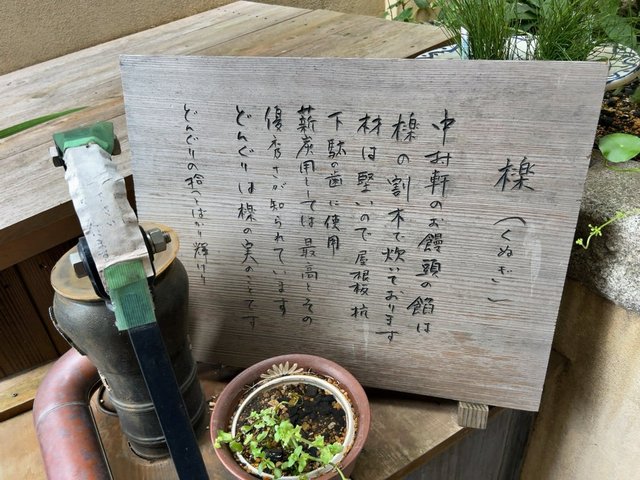 櫟（くぬぎ）
中村軒のお饅頭の餡は
櫟の割木で炊いております
材は堅いので屋根板杭
下駄歯に使用
薪炭用としては最高でその
優店さが知られています
どんぐりは櫟の実のことです
どんぐりの拾へばかり輝けり